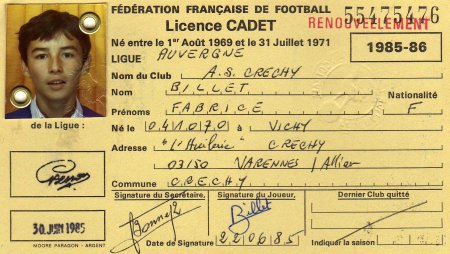 FÉDÉRATION FRANÇAISE DE FOOTBALL
55475476
Licence CADET
RENOUVELLEMENT
Né entre le 1er Août 1969 et le 31 Juillet 1971
1985-86
LIGUE AUVERGNE
Nom du Club A.S. CRECHY
Nom BILLET
Nationalité
Prénoms FABRICE F
de la Ligue :
Né le 041070 à VICHY
Adresse CRECHY
03150 VARENNES / Allier
Commune CRECHY
Signature du Secrétaire,
Signature du Joueur,
Dernier Club quitté
Billet
30 JUIN 1985
Date de Signature 220685
Indiquer la saison
MOORE PARAGON - ARGENT